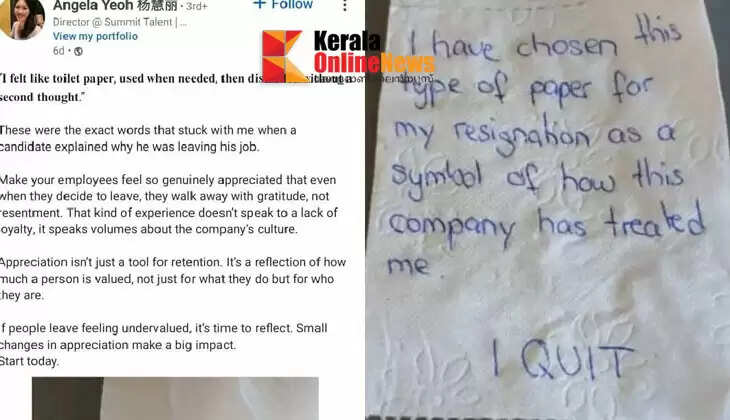 Angela Yeoh 杨慧丽 · 3rd+
+ Follow
Director @ Summit Talent | ...
View my portfolio
6d
"I felt like toilet paper, used when needed, then
second thought."
These were the exact words that stuck with me when a
candidate explained why he was leaving his job.
Make your employees feel so genuinely appreciated that even
when they decide to leave, they walk away with gratitude, not
resentment. That kind of experience doesn't speak to a lack of
oyalty, it speaks volumes about the company's culture.
Appreciation isn't just a tool for retention. It's a reflection of how
much a person is valued, not just for what they do but for who
they are.
f people leave feeling undervalued, it's time to reflect. Small
changes in appreciation make a big impact.
Start today.
Kerala
OnlineNews
I have chosen this
type of paper for
my resignation as a
symbol of how this
company has treated
me.
I QUIT